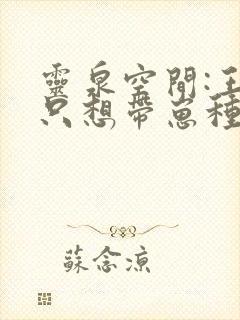 靈泉空間:王
只想帶崽種
蘇念涼